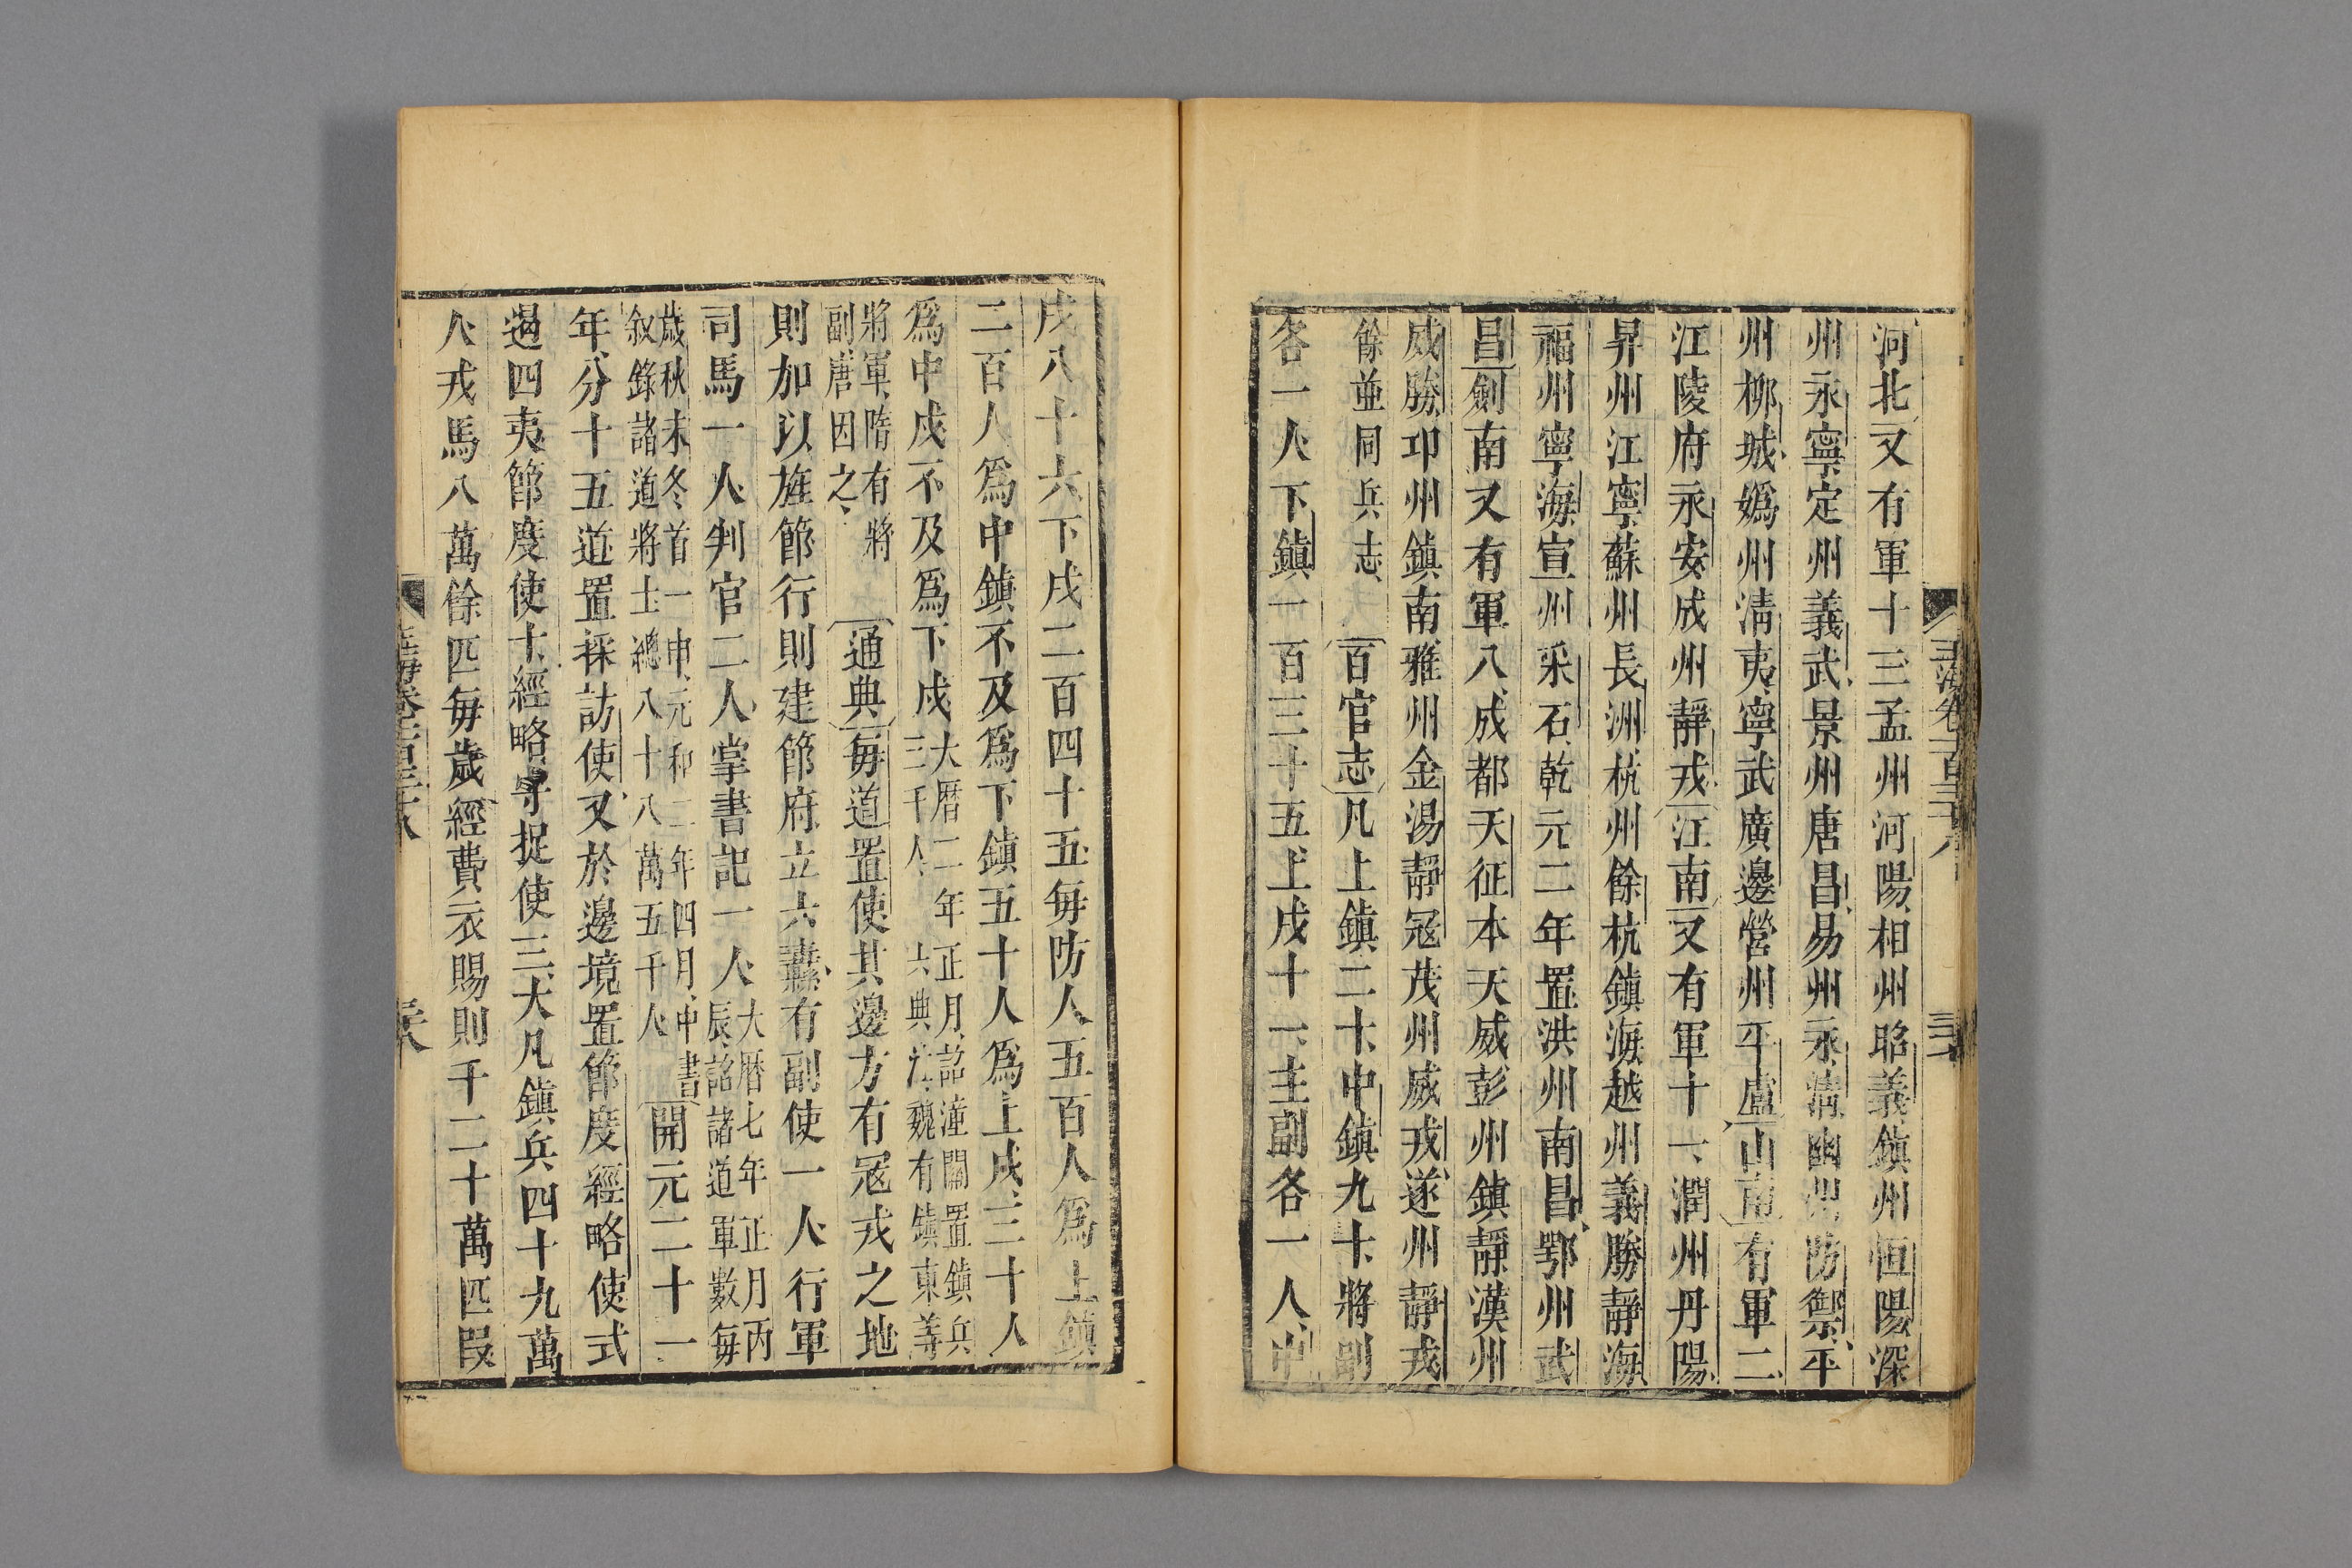 河北又有軍十三孟州河陽相州昭義鎮州恒陽深
州永寧定州義武景州唐昌易州永清幽州防禦平
州柳城媯州清夷寧武廣邊營州平盧山南有軍二
江陵府永安成州靜戎江南又有軍十一潤州丹陽
昇州江寧蘇州長洲杭州餘杭鎮海越州義勝靜海
福州寧海宣州采石乾元二年置洪州南昌鄂州武
昌劍南又有軍八成都天征本天威彭州鎮靜漢州
威勝卭州鎮南雅州金湯靜寇茂州威戎遂州靜戎
餘並同兵志百官志凡上鎮二十中鎮九十將副
各一人下鎮一百三十五上戍十一主副各一人中
玉海卷一百三十八
戍八十六下戍二百四十五每防人五百人爲上鎮
二百人爲中鎮不及爲下鎮五十人爲上戍三十人
爲中戍不及爲下戍
大曆二年正月詔潼關置鎮兵
三千人 六典注魏有鎮東等
將軍隋有將
副唐因之
通典每道置使其邊方有寇戎之地
則加以旌節行則建節府立六纛有副使一人行軍
司馬一人判官二人掌書記一人
大曆七年正月丙
辰詔諸道軍數每
歲秋末冬首一申元和二年四月中書
叙錄諸道將士總八十八萬五千人
開元二十一
年分十五道置採訪使又於邊境置節度經略使式
遏四夷節度使十經略守捉使三大凡鎮兵四十九萬
人戎馬八萬餘匹每歲經費衣賜則千二十萬匹段